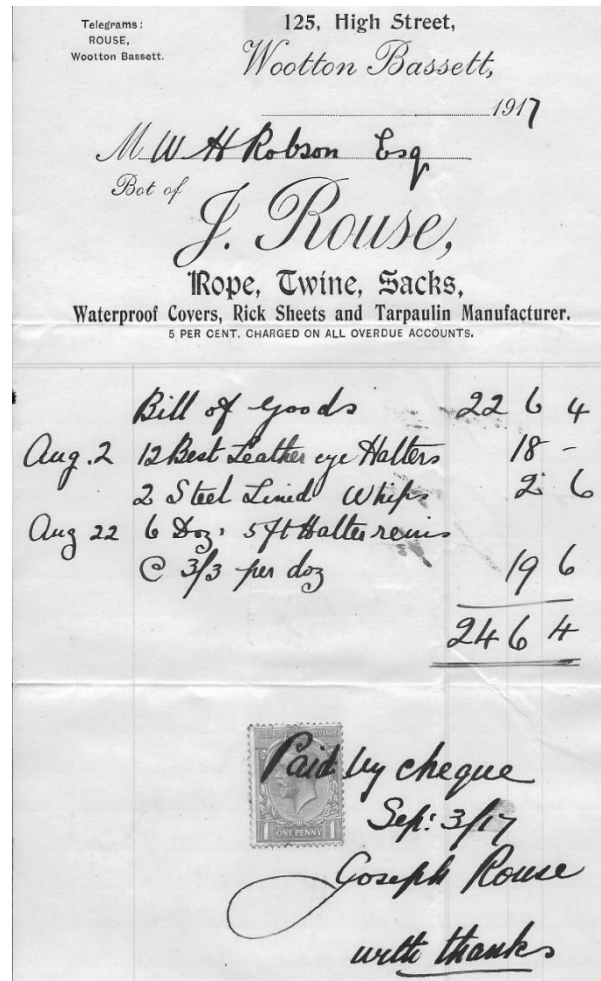 Telegrams:
ROUSE,
Wootton Bassett.
125, High Street,
Wootton Bassett,
1917
M W H Robson Esq
Bot of
J. Rouse,
Rope, Twine, Sacks,
Waterproof Covers, Rick Sheets and Tarpaulin Manufacturer.
5 PER CENT. CHARGED ON ALL OVERDUE ACCOUNTS.
Bill of Goods 22 6 4
Aug. 2 12 Best Leather eye Halters 18 -
2 Steel Lined Whips 2 6
Aug 22 6 Doz: 5 ft Halter reins
@ 3/3 per doz 19 6
24 6 4
Paid by cheque
Sep: 3/17
Joseph Rouse
with thanks
1 ONE PENNY 1